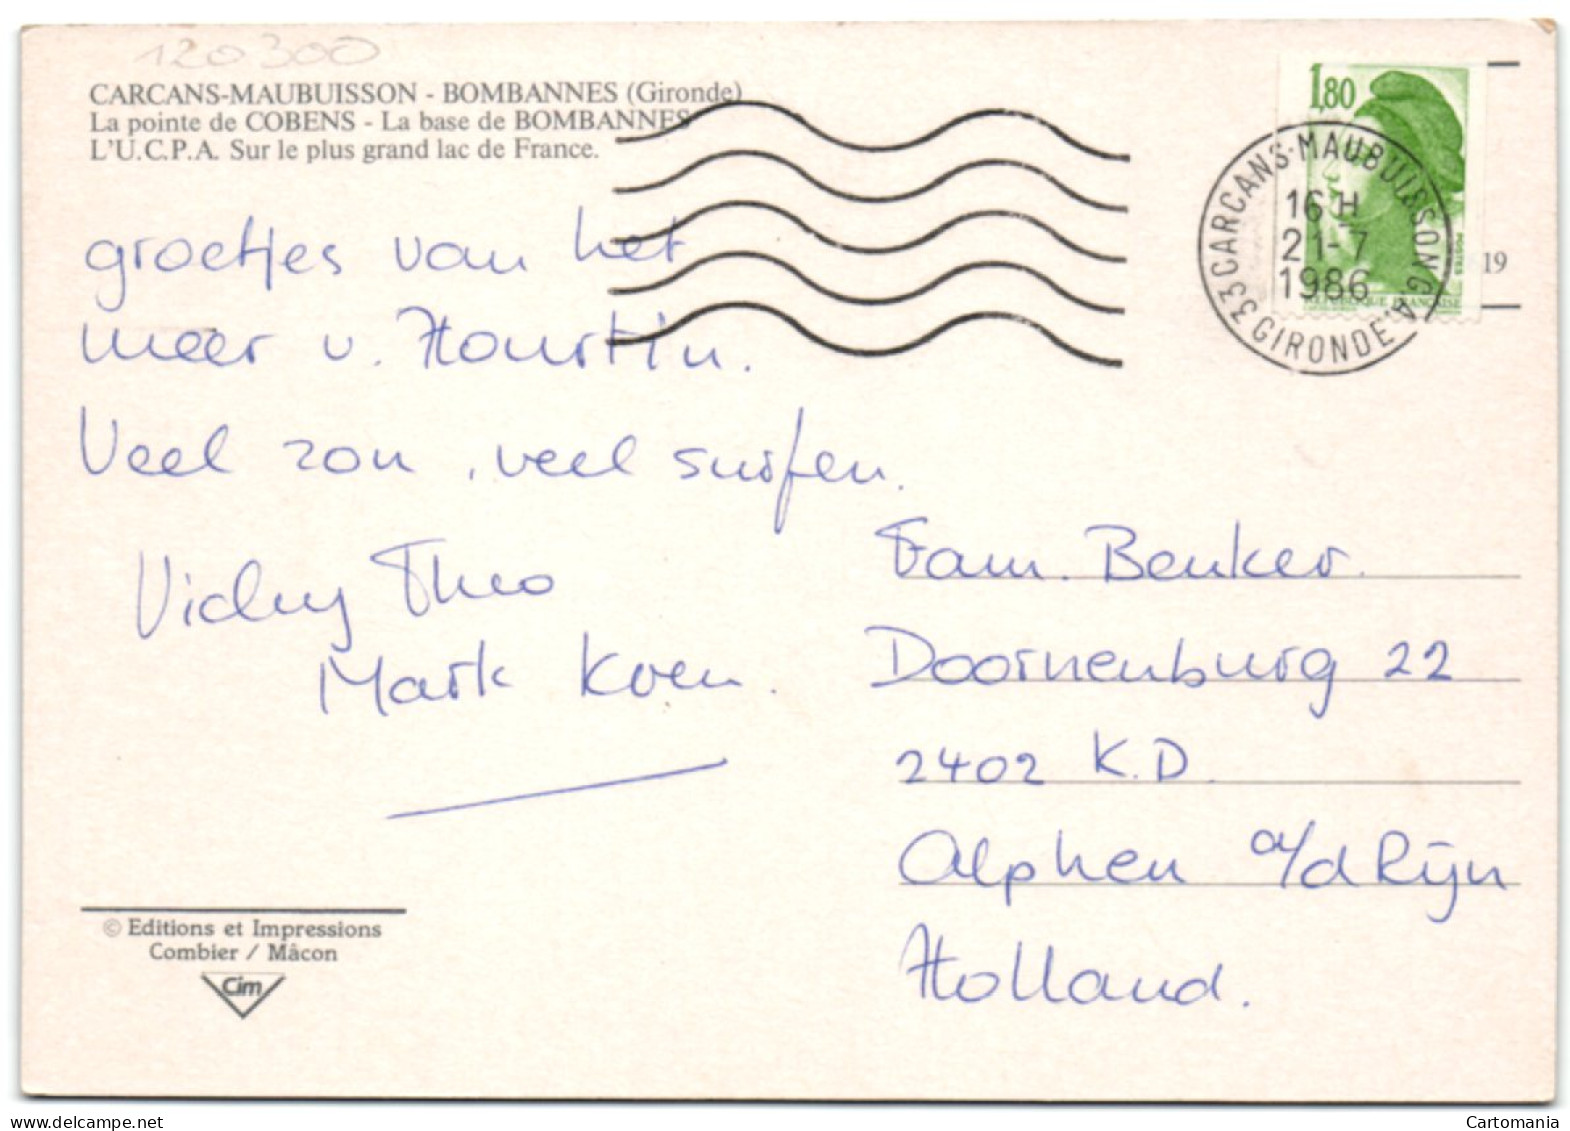 120300
CARCANS-MAUBUISSON - BOMBANNES (Gironde)
La pointe de COBENS - La base de BOMBANNES
L'U.C.P.A. Sur le plus grand lac de France.
groetjes van het
meer v. Hourtin.
Veel zon, veel surfen.
Vicky Theo
Mark Koen.
© Editions et Impressions
Combier / Mâcon
Cim
1,80
POSTES
REPUBLIQUE FRANÇAISE
33 CARCANS-MAUBUISSON G.A.
16 H
21-7
1986
GIRONDE
19
Fam. Benker.
Doornenburg 22
2402 K.D.
Alphen a/d Rijn
Holland.
Cartomania